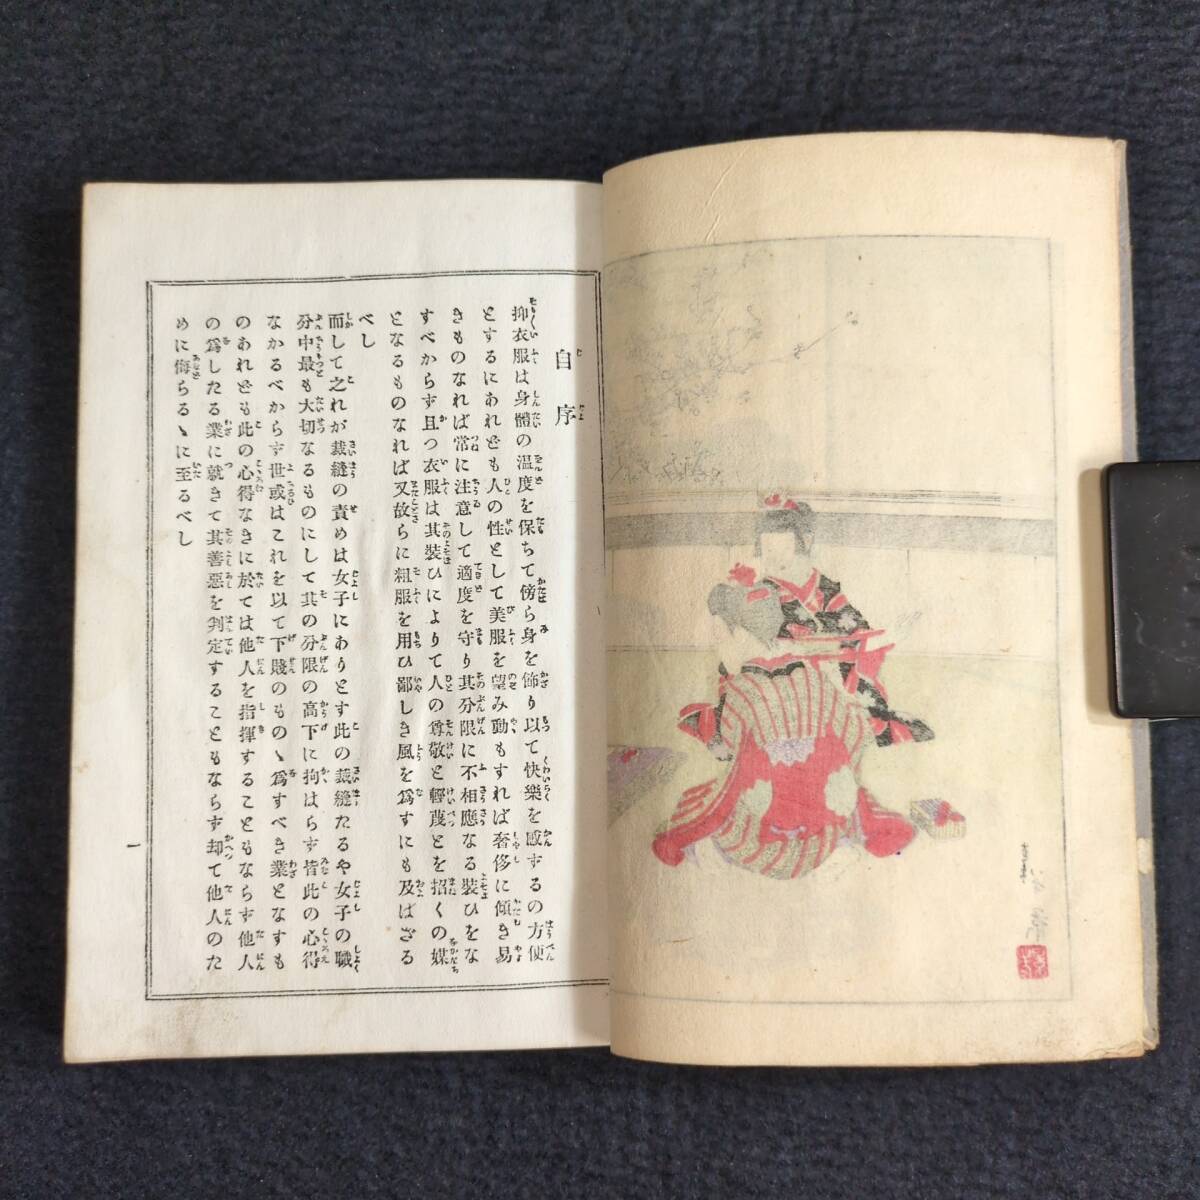 自序
抑衣服は身體の温度を保ちて傍ら身を飾り以て快樂を感ずるの方便
とするにあれども人の性として美服を望み動もすれば奢侈に傾き易
きものなれば常に注意して適度を守り其分限に不相應なる裝ひをな
すべからず且つ衣服は其裝ひによりて人の尊敬と輕蔑とを招くの媒
となるものなれば又故らに粗服を用ひ鄙しき風を爲すにも及ばざる
べし
而して之れが裁縫の責めは女子にありとす此の裁縫たるや女子の職
分中最も大切なるものにして其の分限の高下に拘はらず皆此の心得
なかるべからず世或はこれを以て下賤のものゝ爲すべき業となすも
のあれども此の心得なきに於ては他人を指揮することもならず他人
の爲したる業に就きて其善惡を判定することもならず却て他人のた
めに侮らるゝに至るべし
一